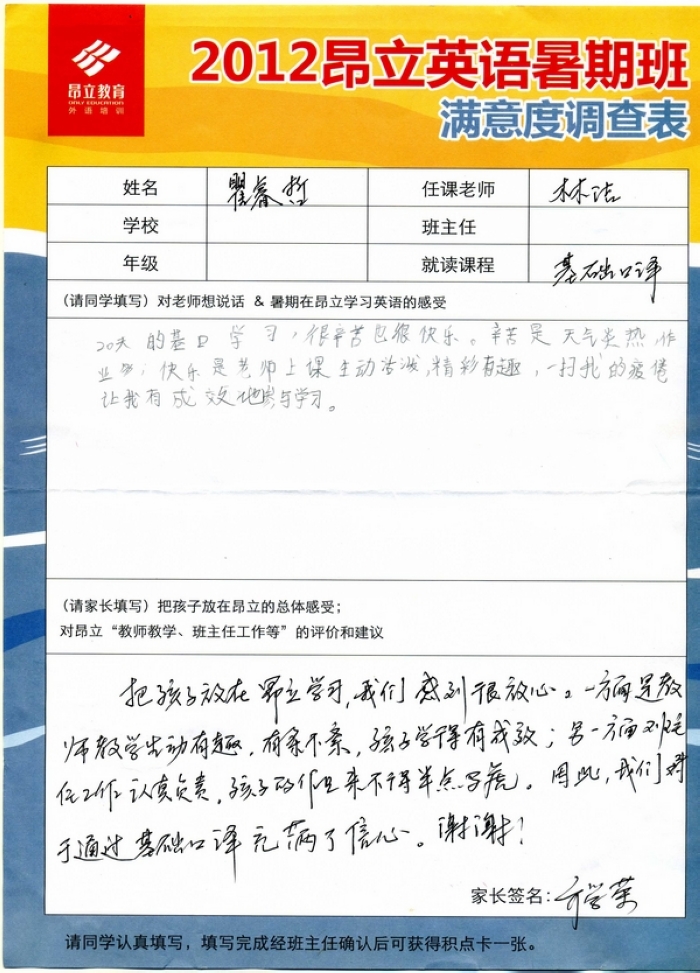 昂立教育
ONLY EDUCATION
外语培训
2012昂立英语暑期班
满意度调查表
姓名 瞿睿哲 任课老师 林洁
学校 班主任
年级 就读课程 基础口译
(请同学填写) 对老师想说话 & 暑期在昂立学习英语的感受
20天的基口学习，很辛苦也很快乐。辛苦是天气炎热,作
业多；快乐是老师上课生动活泼,精彩有趣，一扫我的疲倦
让我有成效地参与学习。
(请家长填写) 把孩子放在昂立的总体感受；
对昂立“教师教学、班主任工作等”的评价和建议
把孩子放在昂立学习,我们感到很放心。一方面是教
师教学生动有趣，有条不紊，孩子学得有成效；另一方面班主
任工作认真负责，孩子的作业来不得半点马虎。因此，我们对
于通过基础口译充满了信心。谢谢！
家长签名：学荣
请同学认真填写，填写完成经班主任确认后可获得积点卡一张。